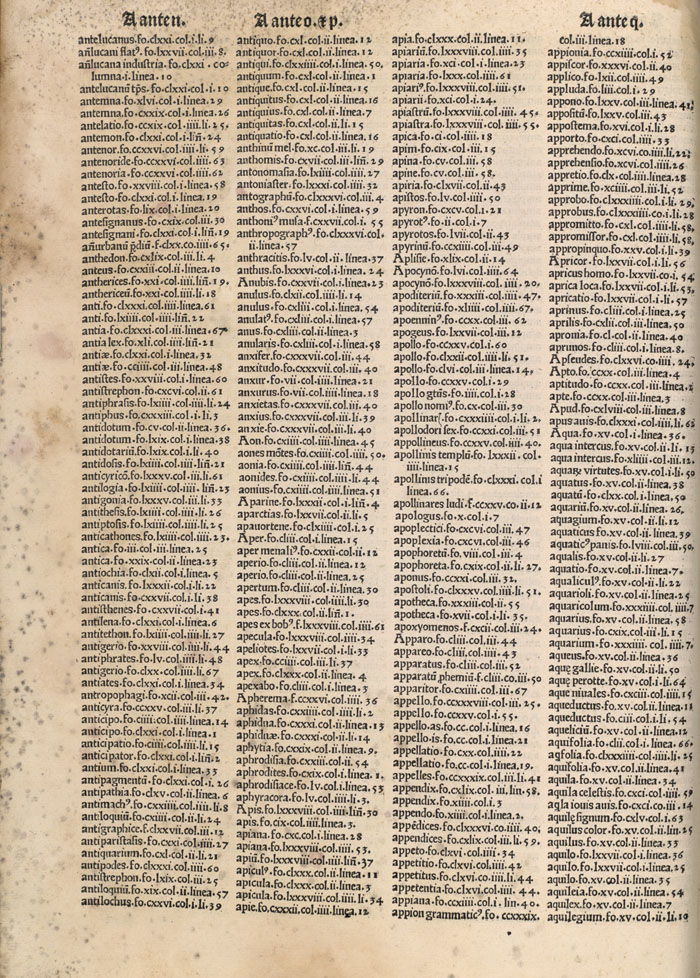 A ante n.
A ante o. & p.
A ante q.
antelucanus.fo.clxxi.col.i.li.9
añlucani flatꝰ.fo.lxxvii.col.iii.8.
añlucana industria.fo.clxxi.co=
lumna.i.linea.10
antelucanũ tp̃s.fo.clxxi.col.i.10
antemna.fo.xlvi.col.i.linea.29
antemna.fo.ccxix.col.i.linea.26
antelatio.fo.ccxix.col.iiii.li.25.
antemon.fo.clxxi.col.i.liñ.24
antenor.fo.ccxvi.col.iiii.li.59
antenoride.fo.ccxxvi.col.iiii.63
antenoria.fo.ccxxvi.col.iiii.62
antesto.fo.xxviii.col.i.linea.58
antesto.fo.clxxi.col.i.linea.19
anterotas.fo.lix.col.i.linea.20
antesignanus.fo.cxix.col.iii.30
antesignani.fo.clxxi.col.i.liñ.19
añurbanũ p̃diũ.f.clxx.co.iiii.65.
anthedon.fo.cxlix.col.iii.li.4
anteus.fo.cxxiii.col.ii.linea.10
antherices.fo.xxi.col.iiii.liñ.19.
anthericeũ.fo.xxi.col.iiii.li.18
anti.fo.clxxxi.col.iiii.linea.61
anti.fo.lxiiii.col.iiii.liñ.22
antia.fo.clxxxi.col.i.linea.67
antia lex.fo.xli.col.iiii.liñ.21
antiæ.fo.clxxi.col.i.linea.32
antiæ.fo.ccliiii.col.iii.linea.48
antistes.fo.xxvii.col.i.linea.60
antistrephon.fo.cxcvi.col.ii.61
antiphrasis.fo.lxiiii.col.iii.li.24
antiphus.fo.cxxxiii.col.i.li.3
antidotum.fo.cv.col.ii.linea.36.
antidotum.fo.lxix.col.i.linea.38
antidotariũ.fo.lxix.col.i.li.40
antidosis.fo.lxiiii.col.iiii.liñ.21
anticyricõ.fo.lxxv.col.iii.li.61
antilogia.fo.lxiii.col.iiii.liñ.23
antigonia.fo.lxxv.col.iii.li.33
antithesis.fo.lxiiii.col.iiii.li.26
antiptosis.fo.lxiiii.col.iiii.li.25
anticathones.fo.lxiii.col.iiii.23.
antica.fo.iii.col.iii.linea.25
antica.fo.xxix.col.ii.linea.23
antiochia.fo.clxii.col.i.linea.5
anticanis.fo.lxxvi.col.i.li.22
anticanis.fo.cxxvii.col.i.li.38
antisthenes.fo.cxvii.col.i.41
antilena.fo.clxxi.col.i.linea.6
antitethon.fo.lxiiii.col.iiii.li.27
antigerio.fo.xxviii.col.iii.li.44
antiphrates.fo.lv.col.iiii.li.48
antigerio.fo.clxx.col.iiii.li.67
antiates.fo.clxxi.col.i.linea.34
antropophagi.fo.xcii.col.iii.42.
anticyra.fo.ccxxv.col.iii.li.37
anticipo.fo.ciiii.col.iiii.linea.14
anticipo.fo.clxxi.col.i.linea.1
anticipatio.fo.ciiii.col.iiii.li.15
anticipator.fo.clxxi.col.i.liñ.2
antium.fo.clxxi.col.i.linea.33
antipagmentũ.fo.clxxi.col.i.26
antipathia.fo.clxv.col.ii.linea.6
antimachꝰ.fo.cxxiiii.col.iiii.li.8
antiloquiũ.fo.ciiii.col.ii.li.24
antigraphice.f.clxxvii.col.iii.12
antiparistasis.fo.cxxi.col.iiii.27
antiquarium.fo.cxl.col.ii.li.21
antipodes.fo.clxxxi.col.iiii.60
antistrephon.fo.lxix.col.iii.25
antiloquiũ.fo.xix.col.ii.linea.57
antilochus.fo.cxxvi.col.i.li.39
antiquo.fo.cxl.col.ii.linea.12
antiquor.fo.cxl.col.ii.linea.12
antiqui.fo.clxxiiii.col.i.linea.50.
antiquum.fo.cxl.col.ii.linea.1
antique.fo.cxl.col.ii.linea.15
antiquitus.fo.cxl.col.ii.linea.16
antiquius.fo.cxl.col.ii.linea.7
antiquitas.fo.cxl.col.ii.li.15
antiquatio.fo.cxl.col.ii.linea.16
anthinũ mel.fo.xc.col.iii.li.19
anthomis.fo.cxvii.col.iii.liñ.29
antonomasia.fo.lxiiii.col.iiii.27
antoniaster.fo.lxxxi.col.iiii.32
antographũ.fo.clxxxviii.col.ii.4
anthos.fo.cxxvi.col.i.linea.59
anthoniꝰ musa.f.cxxvii.col.i.55
anthropographꝰ.fo.clxxxvi.col.
ii.linea.57
anthracitis.fo.lv.col.iii.linea.37
anthus.fo.lxxxvi.col.i.linea.24
Anubis.fo.cxxvii.col.i.linea.23
anulus.fo.clxii.col.ii.li.14
anulus.fo.cxliii.col.i.linea.54
anulatꝰ.fo.cxliii.col.i.linea.57
anus.fo.cxliii.col.ii.linea.3
anularis.fo.cxliii.col.i.linea.58
anxifer.fo.cxxxvii.col.iii.44
anxitudo.fo.cxxxvii.col.iii.40
anxur.fo.vii.col.iiii.linea.21
anxurus.fo.vii.col.iiii.linea.18
anxietas.fo.cxxxvii.col.iii.40
anxius.fo.cxxxvii.col.iii.li.39
anxie.fo.cxxxvii.col.iii.li.40
Aon.fo.cxiiii.col.iiii.linea.45
aones mõtes.fo.cxiiii.col.iiii.50.
aonia.fo.cxiiii.col.iiii.liñ.44
aonides.fo.cxiiii.col.iiii.li.44
aonius.fo.cxiiii.col.iiii.linea.51
Aparine.fo.lxxxii.col.i.liñ.4
aparctias.fo.lxxvii.col.ii.li.5
apauortene.fo.clxiiii.col.i.25
Aper.fo.cliii.col.i.linea.15
aper menaliꝰ.fo.cxxii.col.ii.12
aperio.fo.cliii.col.ii.linea.12
aperio.fo.cliii.col.ii.linea.25
apertum.fo.cliii.col.iii.linea.30
apes.fo.lxxxviii.col.iiii.li.30
apes.fo.clxxx.col.ii.liñ.1.
apes ex bobꝰ.f.lxxxviii.col.iiii.61
apecula.fo.lxxxviii.col.iiii.34
apeliotes.fo.lxxvii.col.ii.li.33
apex.fo.cciii.col.iii.li.37
apex.fo.clxxx.col.ii.linea.4
apexabo.fo.cliii.col.i.linea.3
Apherema.f.ccxxvi.col.i.36
aphidas.fo.cxxiiii.col.iiii.li.2
aphidna.fo.cxxxi.col.ii.linea.13
aphidnæ.fo.cxxxi.col.ii.li.14
aphytia.fo.cxxix.col.ii.linea.9.
aphrodisia.fo.cxxiii.col.ii.54
aphrodites.fo.cxix.col.i.linea.1.
aphrodisiace.fo.lv.col.iii.linea.53
aphyracora.fo.lv.col.iiii.li.3.
Apis.fo.lxxxviii.col.iiii.liñ.30
apis.fo.cix.col.iiii.linea.3.
apiana.fo.cxc.col.i.linea.28
apiana.fo.lxxxviii.col.iiii.53.
apiũ.fo.lxxxviii.col.iiii.liñ.37
apiculꝰ.fo.clxxx.col.ii.linea.3
apicula.fo.clxxx.col.ii.linea.3
apicula.fo.lxxxviii.col.iiii.li.34
apie.fo.cxxxii.col.iiii.linea.12
apia.fo.clxxx.col.ii.linea.11
apiariũ.fo.lxxxviii.col.iiii.35
apiaria.fo.xci.col.i.linea.23
apiaria.fo.lxx.col.iiii.61
apiariꝰ.fo.lxxxviii.col.iiii.51.
apiarii.fo.xci.col.i.24.
apiastrũ.fo.lxxxviii.col.iiii.45.
apiastra.fo.lxxxviii.col.iiii.55.
apica.fo.ci.col.iiii.18
apim.fo.cix.col.iii.15
apina.fo.cv.col.iii.58
apine.fo.cv.col.iii.58.
apiria.fo.clxvii.col.ii.43
apistos.fo.lv.col.iii.50
apyron.fo.cxcv.col.i.21
apyrotꝰ.fo.ii.col.i.7
apyrotos.fo.lvii.col.iii.43
apyrinũ.fo.ccxiiii.col.iii.49
Aplisię.fo.xlix.col.ii.14
Apocynõ.fo.lvi.col.iiii.64
apocynõ.fo.lxxxviii.col.iiii.20.
apoditeriũ.fo.xxxiii.col.iiii.47.
apoditeriũ.fo.xl.col.iiii.67
apoenninꝰ.fo.ccxx.col.iii.62
apogeus.fo.lxxvii.col.iii.12
apollo.fo.ccxxv.col.i.60
apollo.fo.clxxii.col.iiii.li.51.
apollo.fo.clvi.col.iii.linea.14,
apollo.fo.ccxxv.col.i.29
apollo gtũs.fo.iiii.col.ii.28
apollo nomiꝰ.fo.cx.col.iii.30
apollinarꝭ.fo.cxxxiiii.col.i.li.2.
apollodori sex.fo.ccxxi.col.iii.51
apollineus.fo.ccxxv.col.iiii.40.
apollinis templũ.fo.lxxxii.col.
iiii.linea.15
apollinis tripodẽ.fo.clxxxi.col.i
linea.66.
apollinares ludi.f.ccxxxv.co.ii.12
apologus.fo.x.col.i.7
apoplectici.fo.cxcvi.col.iii.47
apoplexia.fo.cxcvi.col.iii.46
apophoretũ.fo.viii.col.iii.4
apophoreta.fo.cxix.col.iii.li.27.
aponus.fo.ccxx.col.iii.32.
apostoli.fo.clxxxv.col.iiii.li.51.
apotheca.fo.xxxiii.col.ii.55
apotheca.fo.xvi.col.ii.li.35.
apoxyomenos.f.cxcii.col.iii.24.
Apparo.fo.cliii.col.iii.44
appareo.fo.cliii.col.iiii.43
apparatus.fo.cliii.col.iii.52
apparatũ phemiũ.f.cliii.co.iii.50
apparitor.fo.cxiii.col.iii.67
appello.fo.ccxxxviii.col.iii.25.
appello.fo.ccxxv.col.i.55.
appello-as.fo.cc.col.i.linea.16
appello-is.fo.cc.col.i.linea.21
appellatio.fo.cxx.col.iiii.22
appellatio.fo.cc.col.i.linea.19.
appelles.fo.ccxxxix.col.iii.li.41
appendix.fo.cxlix.col.iii.liñ.58.
appendix.fo.xliiii.col.i.3
appendo.fo.xiiii.col.i.linea.2.
appẽdices.fo.clxxxvi.co.iiii.40,
appendices.fo.cxlix.col.iii.li.59.
appeto.fo.clxvi.col.iiii.34
appetitio.fo.clxvi.col.iii.42
appetitus.fo.clxvi.col.iiii.li.44
appetentia.fo.clxvi.col.iiii.44.
appiana.fo.ccxiiii.col.i.lin.40.
appion grammaticꝰ.fo.ccxxxix.
col.iii.linea.18
appionia.fo.ccxiiii.col.i.52
appiscor.fo.xxvi.col.ii.40
applico.fo.lxii.col.iiii.49
appluda.fo.liii.col.i.29
appono.fo.lxxv.col.iii.linea.41
appositũ.fo.lxv.col.iii.43
appostema.fo.xvi.col.i.li.28
apporto.fo.cxci.col.iii.33
apprehendo.fo.xcvi.co.iiii.li.22
apprehensio.fo.xcvi.col.iiii.26
appretio.fo.clx.col.iiii.linea.28
apprime.fo.xciiii.col.iii.li.52
approbo.fo.clxxxiiii.col.i.li.29
approbus.fo.clxxxiiii.co.i.li.28
appromitto.fo.cxl.col.iiii.li.58,
appromissor.fo.cxl.col.iiii.li.58,
appropinquo.fo.xxv.col.i.li.39
Apricor.fo.lxxvii.col.i.li.56
apricus homo.fo.lxxvii.co.i.54
aprica loca.fo.lxxvii.col.i.li.53,
apricatio.fo.lxxvii.col.i.li.57
aprinus.fo.cliii.col.i.linea.28
aprilis.fo.cxlii.col.iii.linea.50
apronia.fo.cl.col.ii.linea.40
aprunos.fo.cliii.col.i.linea.8.
Apseudes.fo.clxxvi.co.iiii.24,
Apto.fo.ccxx.col.iii.linea.4
aptitudo.fo.ccxx.col.iii.linea.2
apte.fo.ccxx.col.iii.linea.3
Apud.fo.cxlviii.col.iii.linea.8
apus auis.fo.clxxi.col.iii.li.62
Aqua.fo.xv.col.i.linea.36.
aqua intercus.fo.xv.col.ii.li.13
aqua intercus.fo.xliiii.col.iii.12.
aquaꝝ virtutes.fo.xvi.col.i.li.50
aquatus.fo.xv.col.ii.linea.38
aquatũ.fo.clx.col.iii.linea.50
aquariũ.fo.xv.col.ii.linea.26,
aquagium.fo.xv.col.ii.li.12
aquaticus.fo.xv.col.ii.linea.39
aquaticꝰ panis.fo.lviii.col.iii.50,
aqualis.fo.xv.col.ii.li.27
aquatio.fo.xv.col.ii.linea.7.
aqualiculꝰ.fo.xv.col.ii.li.22
aquarioli.fo.xv.col.ii.linea.25
aquaricolum.fo.xxxiiii.col.iiii.7
aquarius.fo.xv.col.ii.linea.58
aquarius.fo.cxix.col.iii.li.15
aquarium.fo.xxxiiii.col.iiii.7.
aqueus.fo.xv.col.ii.linea.36
aquę gallię.fo.xv.col.ii.li.50
aquę perotte.fo.xv.col.i.li.64
aque niuales.fo.cxciii.col.iiii.15
aqueductus.fo.xv.col.ii.linea.11
aqueductus.fo.ciii.col.i.li.54
aqueliciũ.fo.xv.col.ii.linea.12
aquifolia.fo.clii.col.ii.linea.66.
aqfolia.fo.clxxxiiii.col.iiii.25
aquifolia.fo.xv.col.ii.linea.41
aquila.fo.xv.col.ii.linea.34
aquila celestis.fo.cxci.col.iii.59
aqla iouis auis.fo.cxci.co.iii.14
aquilę signum.fo.cxlv.col.i.63
aquilus color.fo.xv.col.ii.lin.25
aquilus.fo.xv.col.ii.linea.33
aquilo.fo.lxxvii.col.i.linea.36
aquilo.fo.xv.col.ii.linea.25
aquilo.fo.xv.col.ii.linea.35
aquileia.fo.xv.col.ii.linea.54
aquilex.fo.xv.col.ii.linea.7
aquilegium.fo.xv.col.ii.li.10